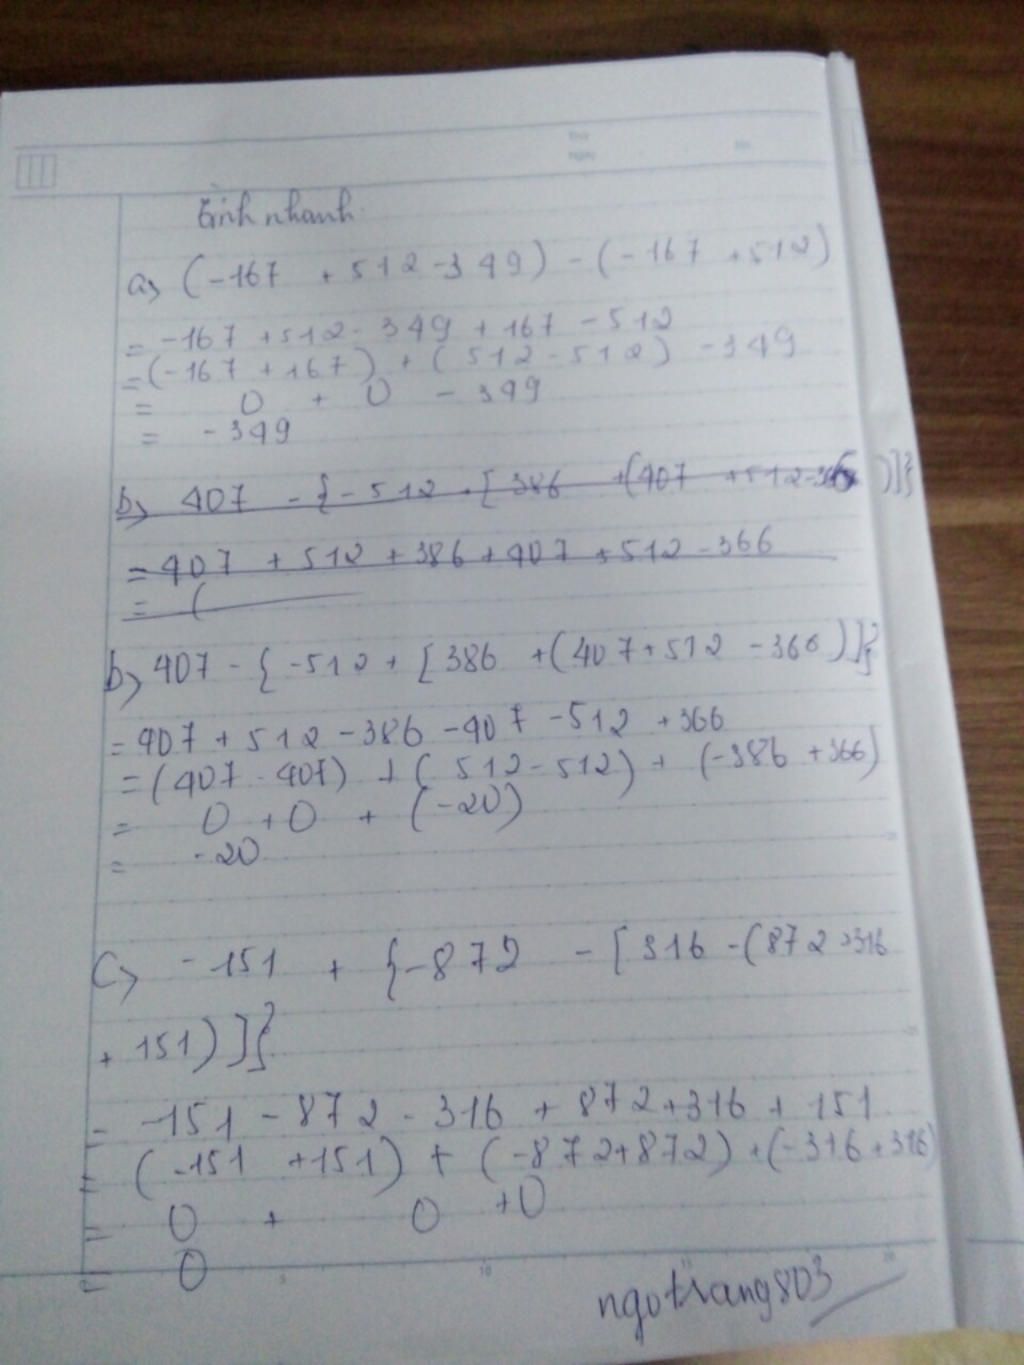 Tính nhanh
a, (-167 + 512 - 349) - (-167 + 512)
= -167 + 512 - 349 + 167 - 512
= (-167 + 167) + (512 - 512) - 349
= 0 + 0 - 349
= -349
b, 407 - {-512 - [386 +(407 + 512 - 366)]}
= 407 + 512 + 386 + 407 + 512 - 366
= (
b, 407 - {-512 + [386 + (407 + 512 - 366)]}
= 407 + 512 - 386 - 407 - 512 + 366
= (407 - 407) + (512 - 512) + (-386 + 366)
= 0 + 0 + (-20)
= -20
C, -151 + {-872 - [316 - (872 + 316
+ 151)]}
= -151 - 872 - 316 + 872 + 316 + 151
= (-151 + 151) + (-872 + 872) + (-316 + 316)
= 0 + 0 + 0
= 0
5 10 15 20
ngotrang803